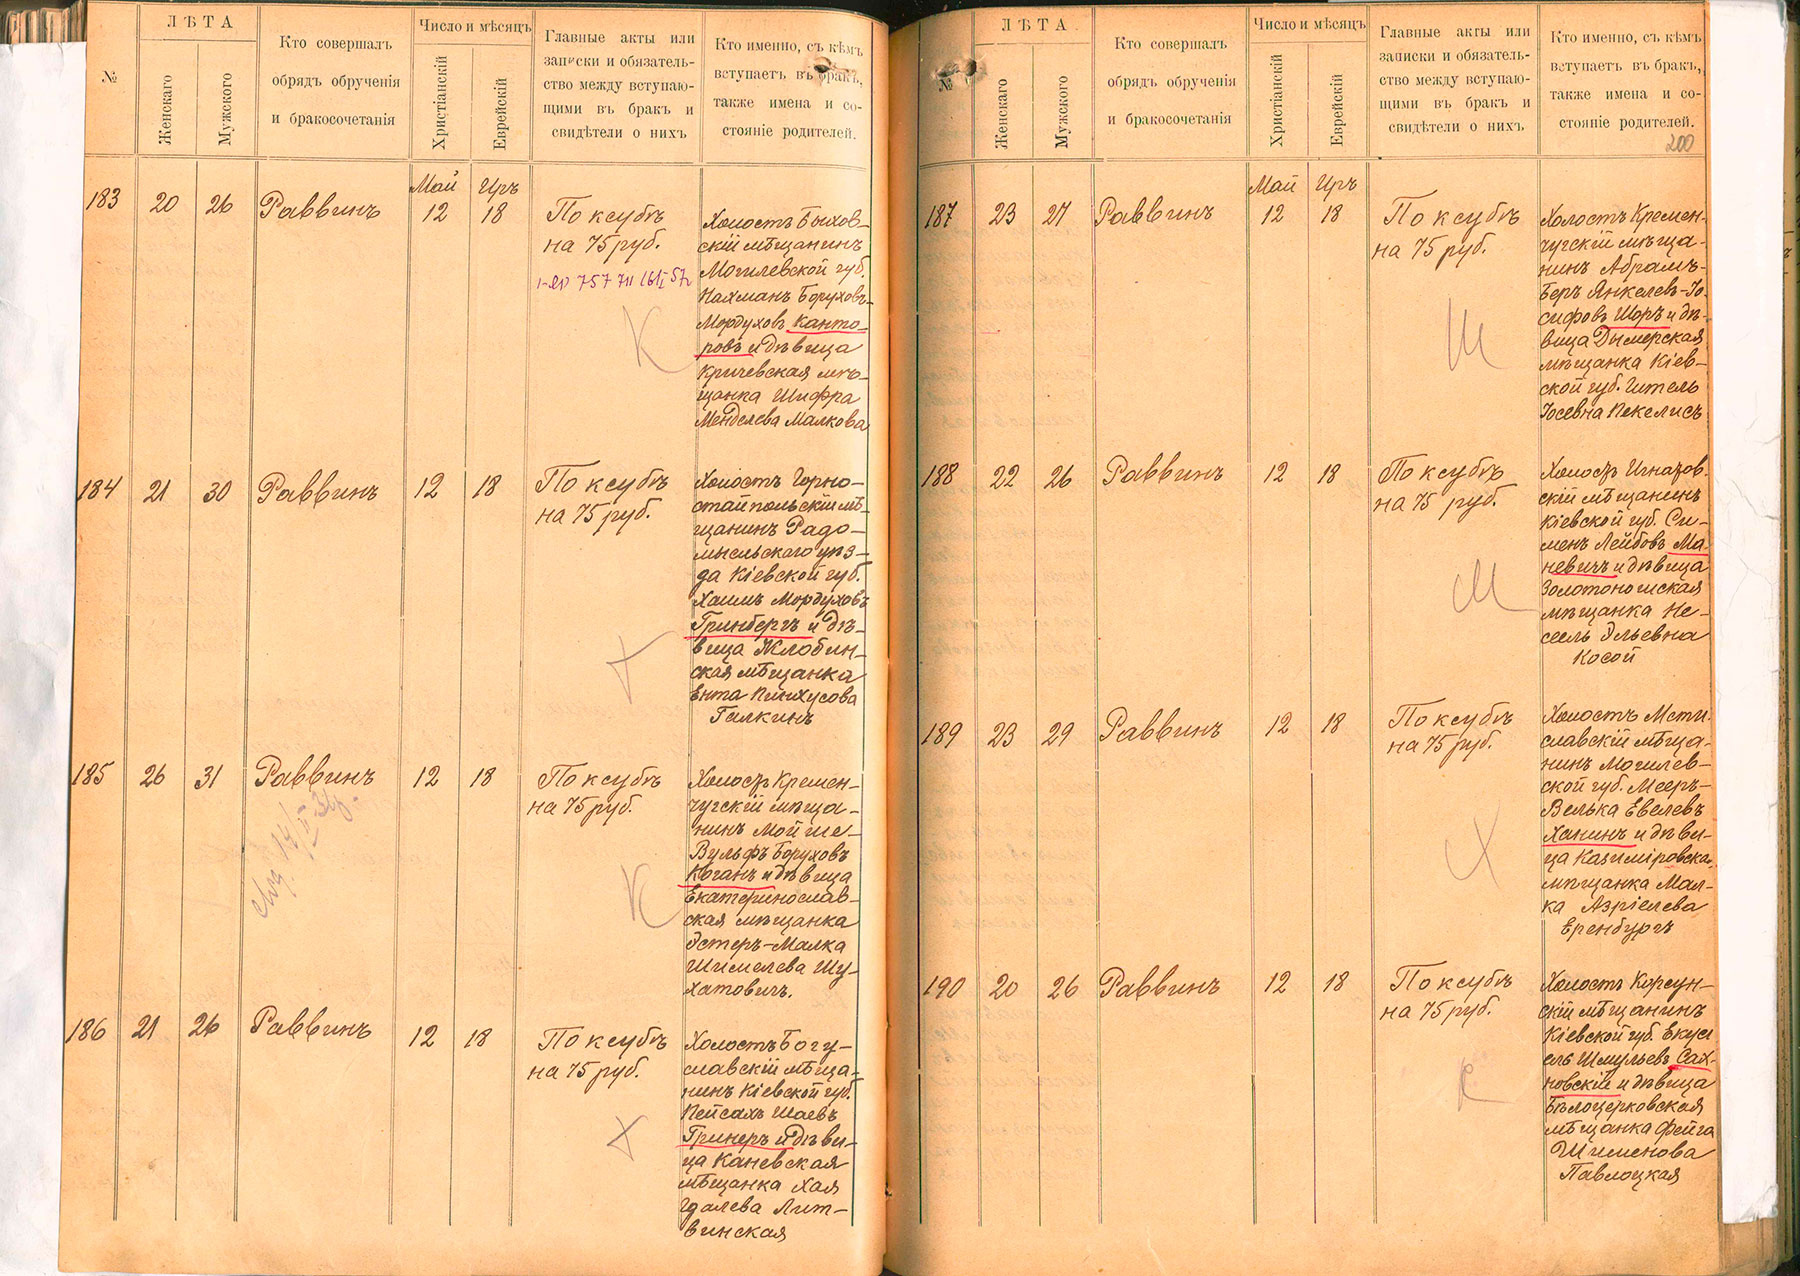 №
ЛѢТА
Женскаго
Мужского
Кто совершалъ
обрядъ обрученія
и бракосочетанія
Число и мѣсяцъ
Христіанскій
Еврейскій
Главные акты или
записки и обязатель-
ство между вступаю-
щими въ бракъ и
свидѣтели о нихъ
Кто именно, съ кѣмъ
вступаетъ въ бракъ,
также имена и со-
стояніе родителей.
183
20
26
Раввинъ
Май
12
Иръ
18
По ксубѣ
на 75 руб.
Холостъ Быхов-
скій мѣщанинъ
Могилевской губ.
Нахманъ Боруховъ-
Мордуховъ Канто-
ровъ и дѣвица
Кричевская мѣ-
щанка Шифра
Менделева Малкова
К
184
21
30
Раввинъ
12
18
По ксубѣ
на 75 руб.
Холостъ Горно-
стайпольскій мѣ-
щанинъ Радо-
мысльскаго уѣз-
да Кіевской губ.
Хаимъ Мордуховъ
Гринбергъ и дѣ-
вица Жлобин-
ская мѣщанка
Ента Пинхусова
Галкинъ
Г
185
26
31
Раввинъ
12
18
По ксубѣ
на 75 руб.
Холостъ Кремен-
чугскій мѣща-
нинъ Мойше-
Вульфъ Боруховъ
Коганъ и дѣвица
Екатеринослав-
ская мѣщанка
Эстеръ-Малка
Шимелева Шу-
хатовичъ.
К
186
21
26
Раввинъ
12
18
По ксубѣ
на 75 руб.
Холостъ Богу-
славскій мѣща-
нинъ Кіевской губ.
Пейсахъ Шаевъ
Гринеръ и дѣви-
ца Каневская
мѣщанка Хая
Гдалева Лит-
винская
Г
№
ЛѢТА
Женскаго
Мужского
Кто совершалъ
обрядъ обрученія
и бракосочетанія
Число и мѣсяцъ
Христіанскій
Еврейскій
Главные акты или
записки и обязатель-
ство между вступаю-
щими въ бракъ и
свидѣтели о нихъ
Кто именно, съ кѣмъ
вступаетъ въ бракъ,
также имена и со-
стояніе родителей.
200
187
23
27
Раввинъ
Май
12
Иръ
18
По ксубѣ
на 75 руб.
Холостъ Кремен-
чугскій мѣща-
нинъ Абрамъ-
Беръ Янкелев-Іо-
сифовъ Шоръ и дѣ-
вица Дымерская
мѣщанка Кіев-
ской губ. Гитель
Іосевна Пекелисъ
Ш
188
22
26
Раввинъ
12
18
По ксубѣ
на 75 руб.
Холостъ Игнатов-
скій мѣщанинъ
Кіевской губ. Си-
менъ Лейбовъ Ма-
невичъ и дѣвица
Золотоношская
мѣщанка Не-
сель Эльевна
Косой
М
189
23
29
Раввинъ
12
18
По ксубѣ
на 75 руб.
Холостъ Мсти-
славскій мѣща-
нинъ Могилев-
ской губ. Мееръ-
Велька Евелевъ
Ханинъ и дѣви-
ца Казиміровска.
мѣщанка Мал-
ка Азріелева
Еренбургъ
Х
190
20
26
Раввинъ
12
18
По ксубѣ
на 75 руб.
Холостъ Корсун-
скій мѣщанинъ
Кіевской губ. Екус
ель Шмульевъ Сах-
новскій и дѣвица
Бѣлоцерковская
мѣщанка Фейга
Шименова
Павлоцкая